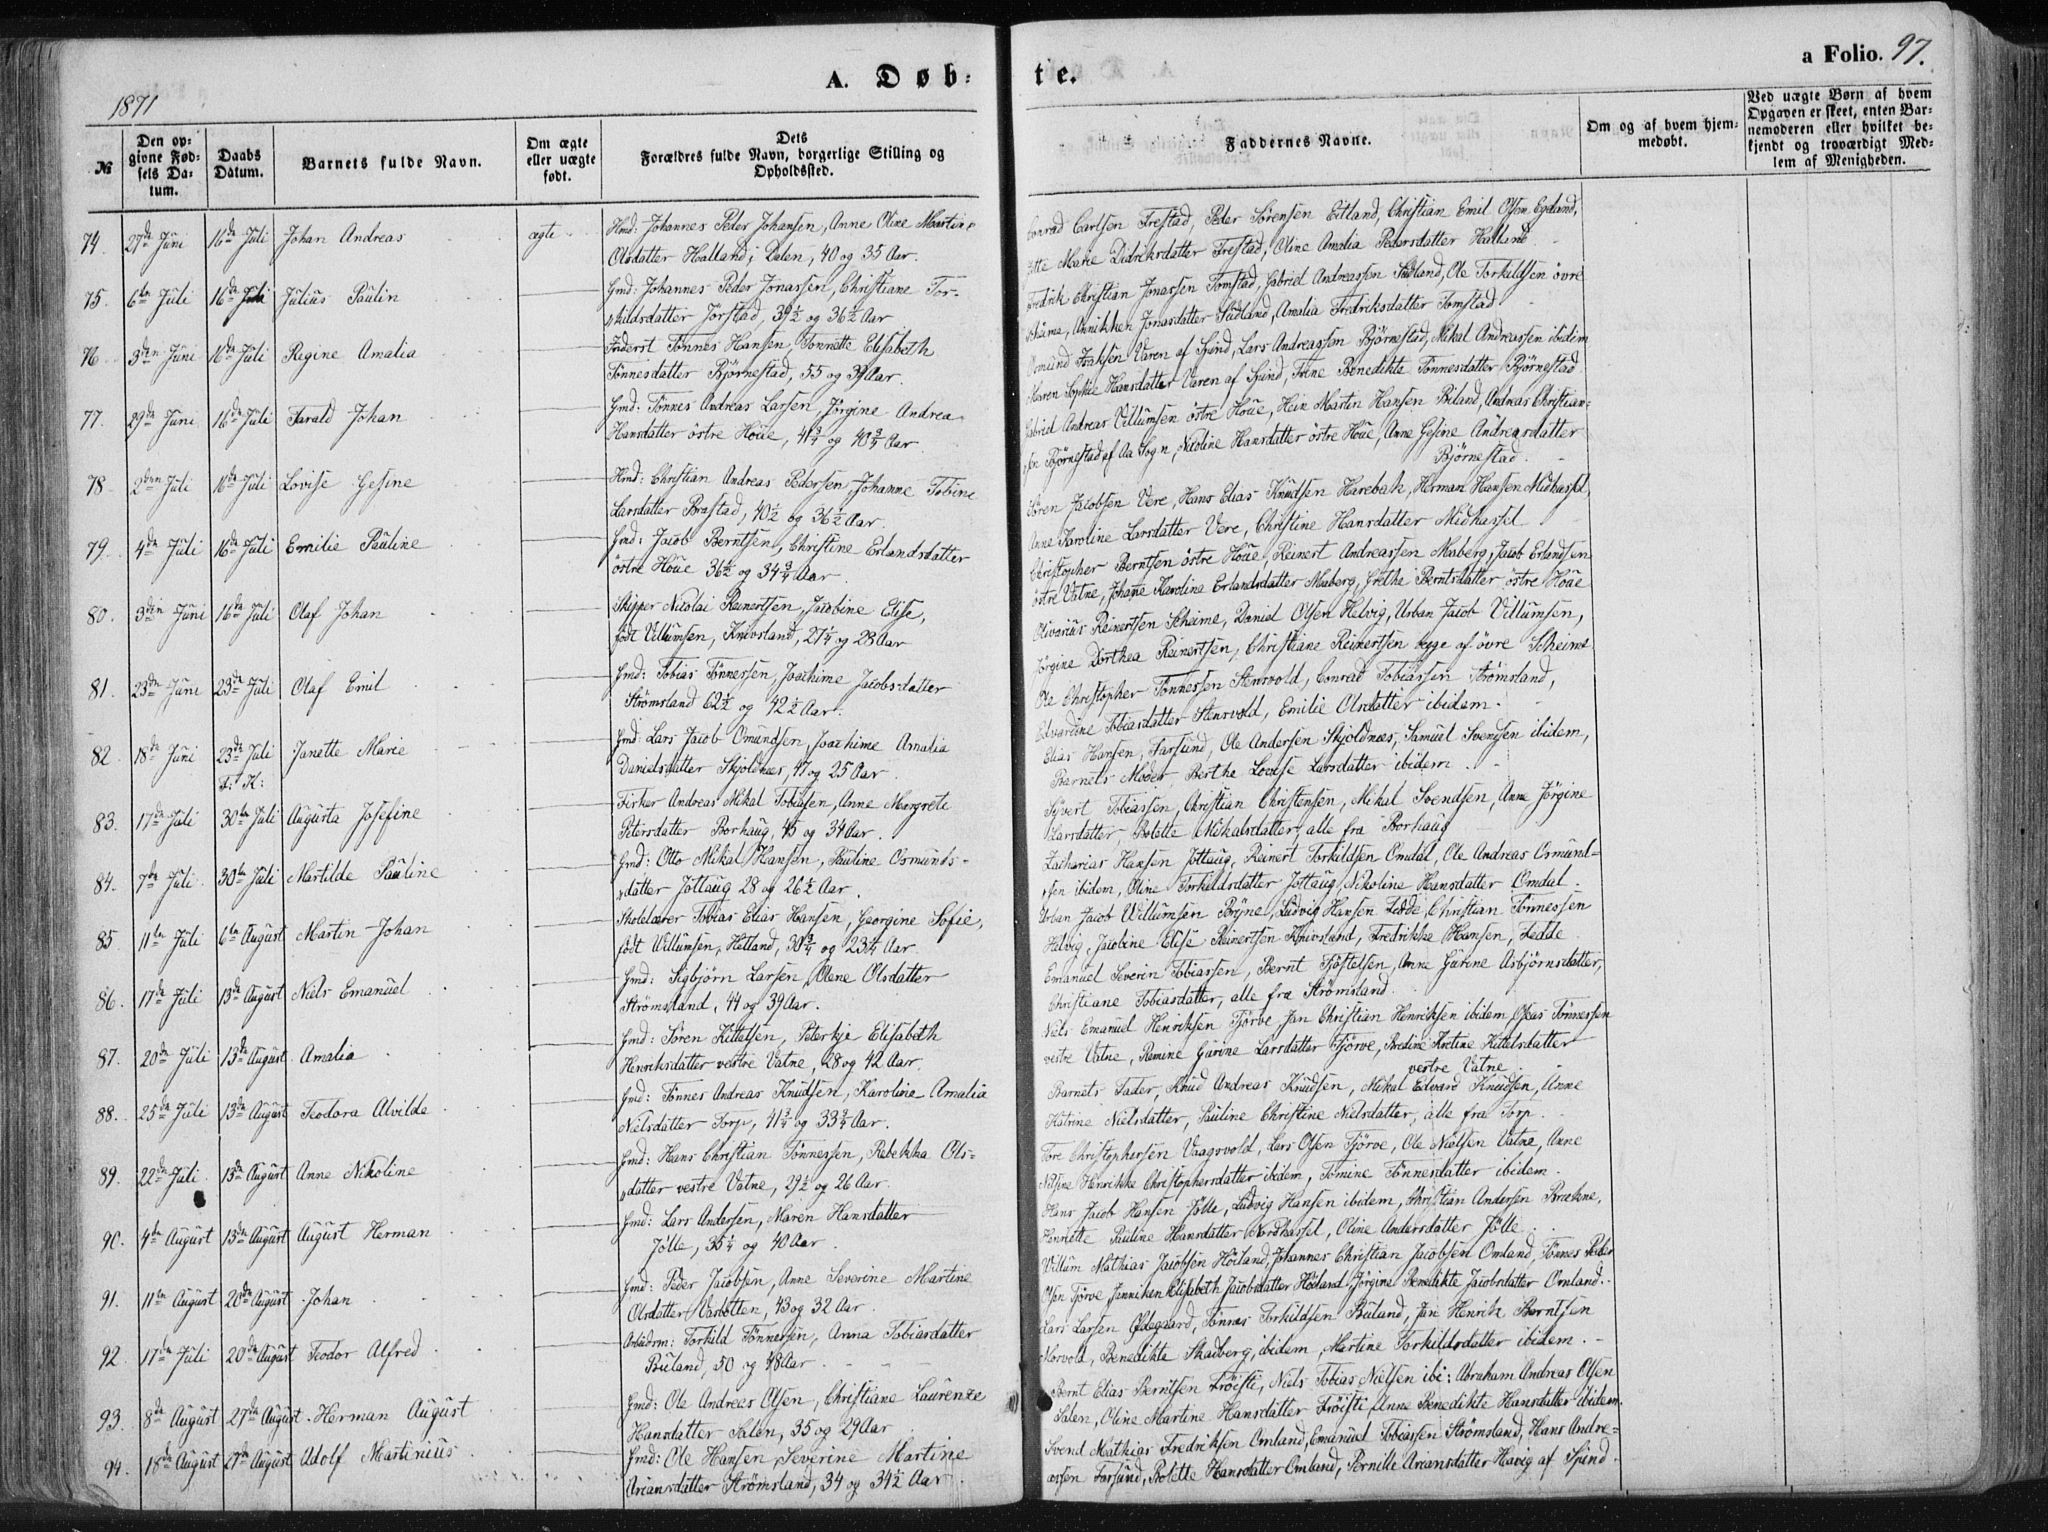 1871
A. Døb-
te.
a Folio. 97.
№
Den opgivne Fødsels Datum.
Daabs Datum.
Barnets fulde Navn.
Om ægte eller uægte født.
Dets Forældres fulde Navn, borgerlige Stilling og Opholdssted.
Faddernes Navne.
Om og af hvem hjemmedøbt.
Ved uægte Børn af hvem Opgaven er skeet, enten Barnemoderen eller hvilket bekjendt og troværdigt Medlem af Menigheden.
74. 27de Juni 16de Juli Johan Andreas ægte Hmd: Johannes Peder Johansen, Anne Oline Martine
Olsdatter Halland i Dalen, 40 og 35 Aar.
Conrad Carlsen Frestad, Peder Sørensen Eitland, Christian Emil Olsen Egeland,
Marie Didriksdatter Frestad, Oline Amalia Pedersdatter Halland
75. 6te Juli 16de Juli Julius Paulin Gmd: Johannes Peder Jonassen, Christiane Tor-
kildsdatter Jørstad, 39½ og 36½ Aar
Fredrik Christian Jonassen Tomstad, Gabriel Andreassen Sädland, Ole Torkildsen övre
Scheime, Annikken Jonasdatter Sädland, Amalia Fredriksdatter Tomstad
76 3den Juni 16de Juli Regine Amalia Inderst Tönnes Hansen, Tonnette Elisabeth
Tönnesdatter Björnestad, 55 og 39 Aar.
Osmund Isaksen Varen af Spind, Lars Andreassen Björnestad, Mikal Andreassen ibidem
Maren Sophie Hansdatter Varen af Spind, Trine Benedikte Tönnesdatter Björnestad
77. 29de Juni 16de Juli Tarald Johan Gmd: Tönnes Andreas Larsen, Jörgine Andrea
Hansdatter östre Houe, 41¾ og 40¾ Aar
Gabriel Andreas Villumsen östre Houe, Hein Martin Hansen Briland, Andreas Christian-
sen Björnestad af Aa Sogn, Nicoline Hansdatter östre Houe, Anne Gesine Andreasdatter
Björnestad.
78 2den Juli 16de Juli Lovise Gesine Hmd: Christian Andreas Pedersen, Johanne Tobine
Larsdatter Brastad, 40½ og 36½ Aar.
Sören Jacobsen Vere, Hans Elias Knudsen Harebak, Herman Hansen Midhassel,
Anne Karoline Larsdatter Vere, Christine Hansdatter Midhassel
79 4de Juli 16de Juli Emilie Pauline Gmd: Jacob Berntsen, Christine Erlandsdatter
östre Houe 36½ og 34¾ Aar.
Christopher Berntsen östre Houe, Reinert Andreassen Maberg, Jacob Erlandsen
östre Vatne, Johanne Karoline Erlandsdatter Maberg, Grethe Berntsdatter östre Houe
80. 3den Juni 16de Juli Olaf Johan Skipper Nicolai Reinertsen, Jacobine Elise,
født Villumsen, Knivsland, 27¼ og 23 Aar
Olivarius Reinertsen Scheime, Daniel Olsen Helvig, Urban Jacob Villumsen,
Jörgine Dorthea Reinertsen, Christiane Reinertsen begge af övre Scheime
81. 23de Juni 23de Juli Olaf Emil Gmd: Tobias Tönnessen, Joachime Jacobsdatter
Strömsland 62½ og 42½ Aar.
Ole Christopher Tönnessen Stensvold, Conrad Tobiassen Strömsland,
Edvardine Tobiasdatter Stensvold, Emilie Olsdatter ibidem.
82 18de Juni 23de Juli Janette Marie Gmd: Lars Jacob Omundsen, Joachime Amalia
F. K: Danielsdatter Skjoldnæs, 47 og 25 Aar
Elias Hansen, Farsund, Ole Andersen Skjoldnæs, Samuel Svendsen ibidem,
Barnets Moder, Berthe Lovise Larsdatter ibidem.
83. 17de Juli 30te Juli Augusta Josefine Fisker Andreas Mikal Tobiassen, Anne Margrete
Petersdatter Borhaug, 45 og 34 Aar.
Syvert Tobiassen, Christian Christensen, Mikal Svendsen, Anne Jörgine
Larsdatter, Bolette Mikalsdatter, alle fra Borhaug
84. 7de Juli 30te Juli Martilde Pauline Gmd: Otto Mikal Hansen, Pauline Osmunds-
datter Jöttaug 28 og 26½ Aar.
Zacharias Hansen Jöttaug, Reinert Torkildsen Omdal, Ole Andreas Osmund-
sen ibidem, Oline Torkildsdatter Jöttaug, Nikoline Hansdatter Omdal.
85. 11te Juli 6te August Martin Johan Skolelærer Tobias Elias Hansen, Georgine Sofie,
født Villumsen, Hetland, 30¾ og 23¼ Aar.
Urban Jacob Willumsen Bryne, Ludvig Hansen Ledde, Christian Tönnessen
Helvig, Jacobine Elise Reinertsen Knivsland, Fredrikke Hansen, Ledde
86. 17de Juli 13de August Niels Emanuel Gmd: Sigbjörn Larsen, Olene Olsdatter
Strömsland, 44 og 39 Aar.
Emanuel Severin Tobiassen, Bernt Tjöstelsen, Anne Gurine Asbjörnsdatter,
Christiane Tobiasdatter, alle fra Strömsland
87. 20de Juli 13de August Amalia Gmd: Sören Kittelsen, Peterkje Elisabeth
Henriksdatter vestre Vatne, 28 og 42 Aar.
Niels Emanuel Henriksen Tjörve, Jan Christian Henriksen ibidem, Oseas Tönnessen
vestre Vatne, Remine Gurine Larsdatter Tjörve, Bredine Kretine Kittelsdatter
vestre Vatne.
88. 25de Juli 13de August Teodora Alvilde Gmd: Tönnes Andreas Knudsen, Karoline Amalia
Nielsdatter Torp, 41¾ og 33¾ Aar.
Barnets Fader, Knud Andreas Knudsen, Mikal Edvard Knudsen, Anne
Katrine Nielsdatter, Pauline Christine Nielsdatter, alle fra Torp.
89. 22de Juli 13de August Anne Nikoline Gmd: Hans Christian Tönnessen, Rebekka Ols-
datter vestre Vatne, 29½ og 26 Aar.
Tore Christophersen Vaagsvold, Lars Olsen Tjörve, Ole Nielsen Vatne, Anne
Nilsine Henrikke Christophersdatter ibidem, Tomine Tönnesdatter ibidem.
90. 4de August 13de August August Herman Gmd: Lars Andersen, Maren Hansdatter
Jölle, 35¼ og 40 Aar.
Hans Jacob Hansen Jölle, Ludvig Hansen ibidem, Christian Andersen Brækne,
Henriette Pauline Hansdatter Nordhassel, Oline Andersdatter Jölle.
91. 11te August 20de August Johan Gmd: Peder Jacobsen, Anne Severine Martine
Olsdatter Vasbotten, 43 og 32 Aar.
Willum Mathias Jacobsen Höiland, Johannes Christian Jacobsen Omland, Tönnes Peder
Olsen Tjörve, Janniken Elisabeth Jacobsdatter Höiland, Jörgine Benedikte Jacobsdatter Omland.
92. 17de Juli 20de August Teodor Alfred Arbeidsm: Torkild Tönnessen, Anna Tobiasdatter
Buland, 50 og 48 Aar.
Lars Larsen Ødegaard, Tönnes Torkildsen Buland, Jan Henrik Berntsen
Morvold, Benedikte Skaiberg, ibidem, Martine Torkildsdatter ibidem.
93. 8de August 27de August Herman August Gmd: Ole Andreas Olsen, Christiane Laurenze
Hansdatter Salen, 35 og 29 Aar
Bernt Elias Berntsen Tröiste, Niels Tobias Nielsen ibi: Abraham Andreas Olsen
Salen, Oline Martine Hansdatter Fröisti, Anne Benedikte Hansdatter ibidem.
94. 18de August 27de August Adolf Martinius Gmd: Ole Hansen, Severine Martine
Ariansdatter Strömsland, 34 og 34½ Aar.
Svend Mathias Fredriksen Omland, Emanuel Tobiassen Strömsland, Hans Andre-
assen Farsund, Bolette Hansdatter Omland, Pernille Ariansdatter Havig af Spind.